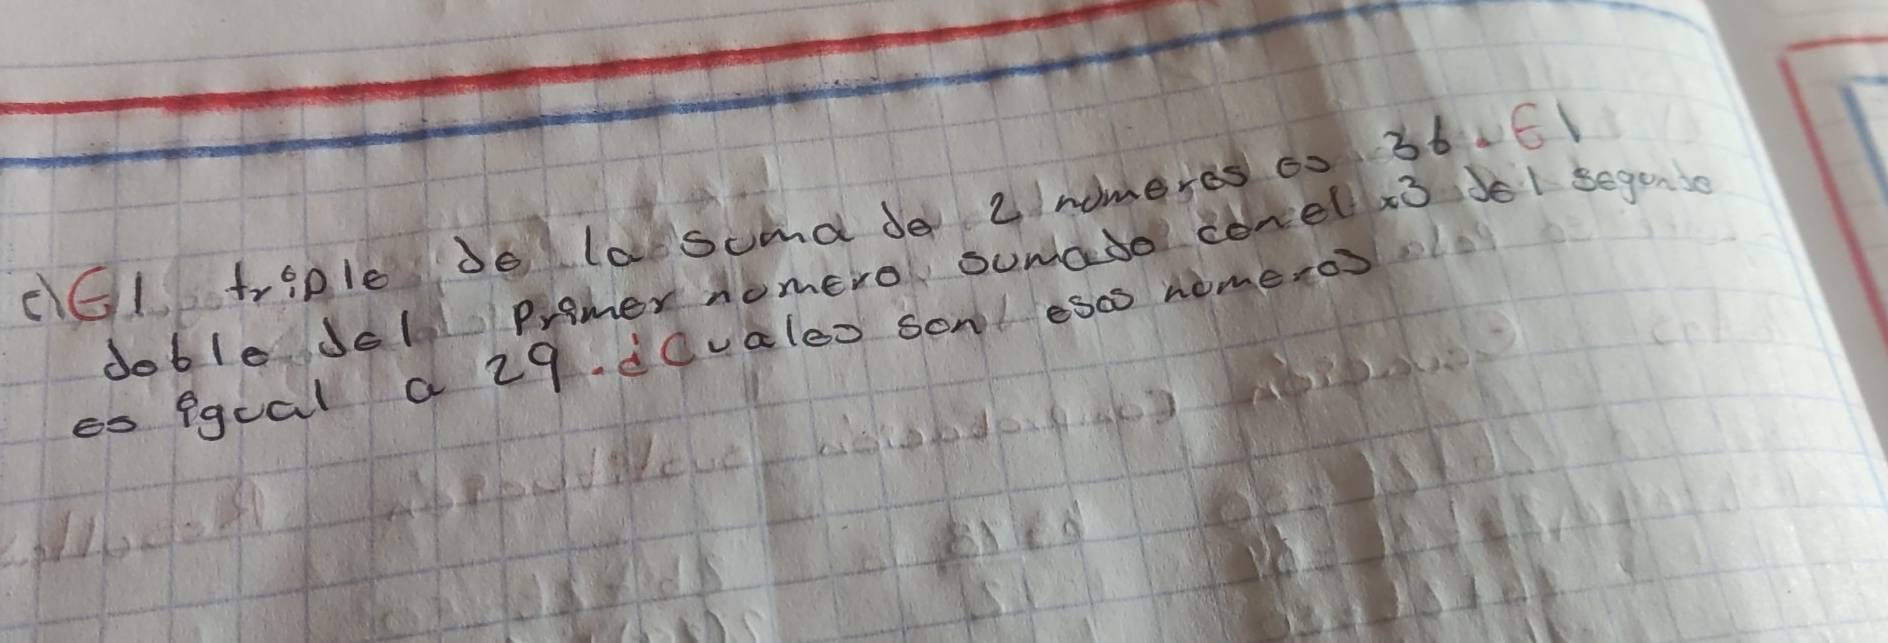 c) El triple de la suma de 2 numeros es 36. El
doble del primer numero sumado con el x3 del segundo
es igual a 29. ¿Cuales son esos numeros